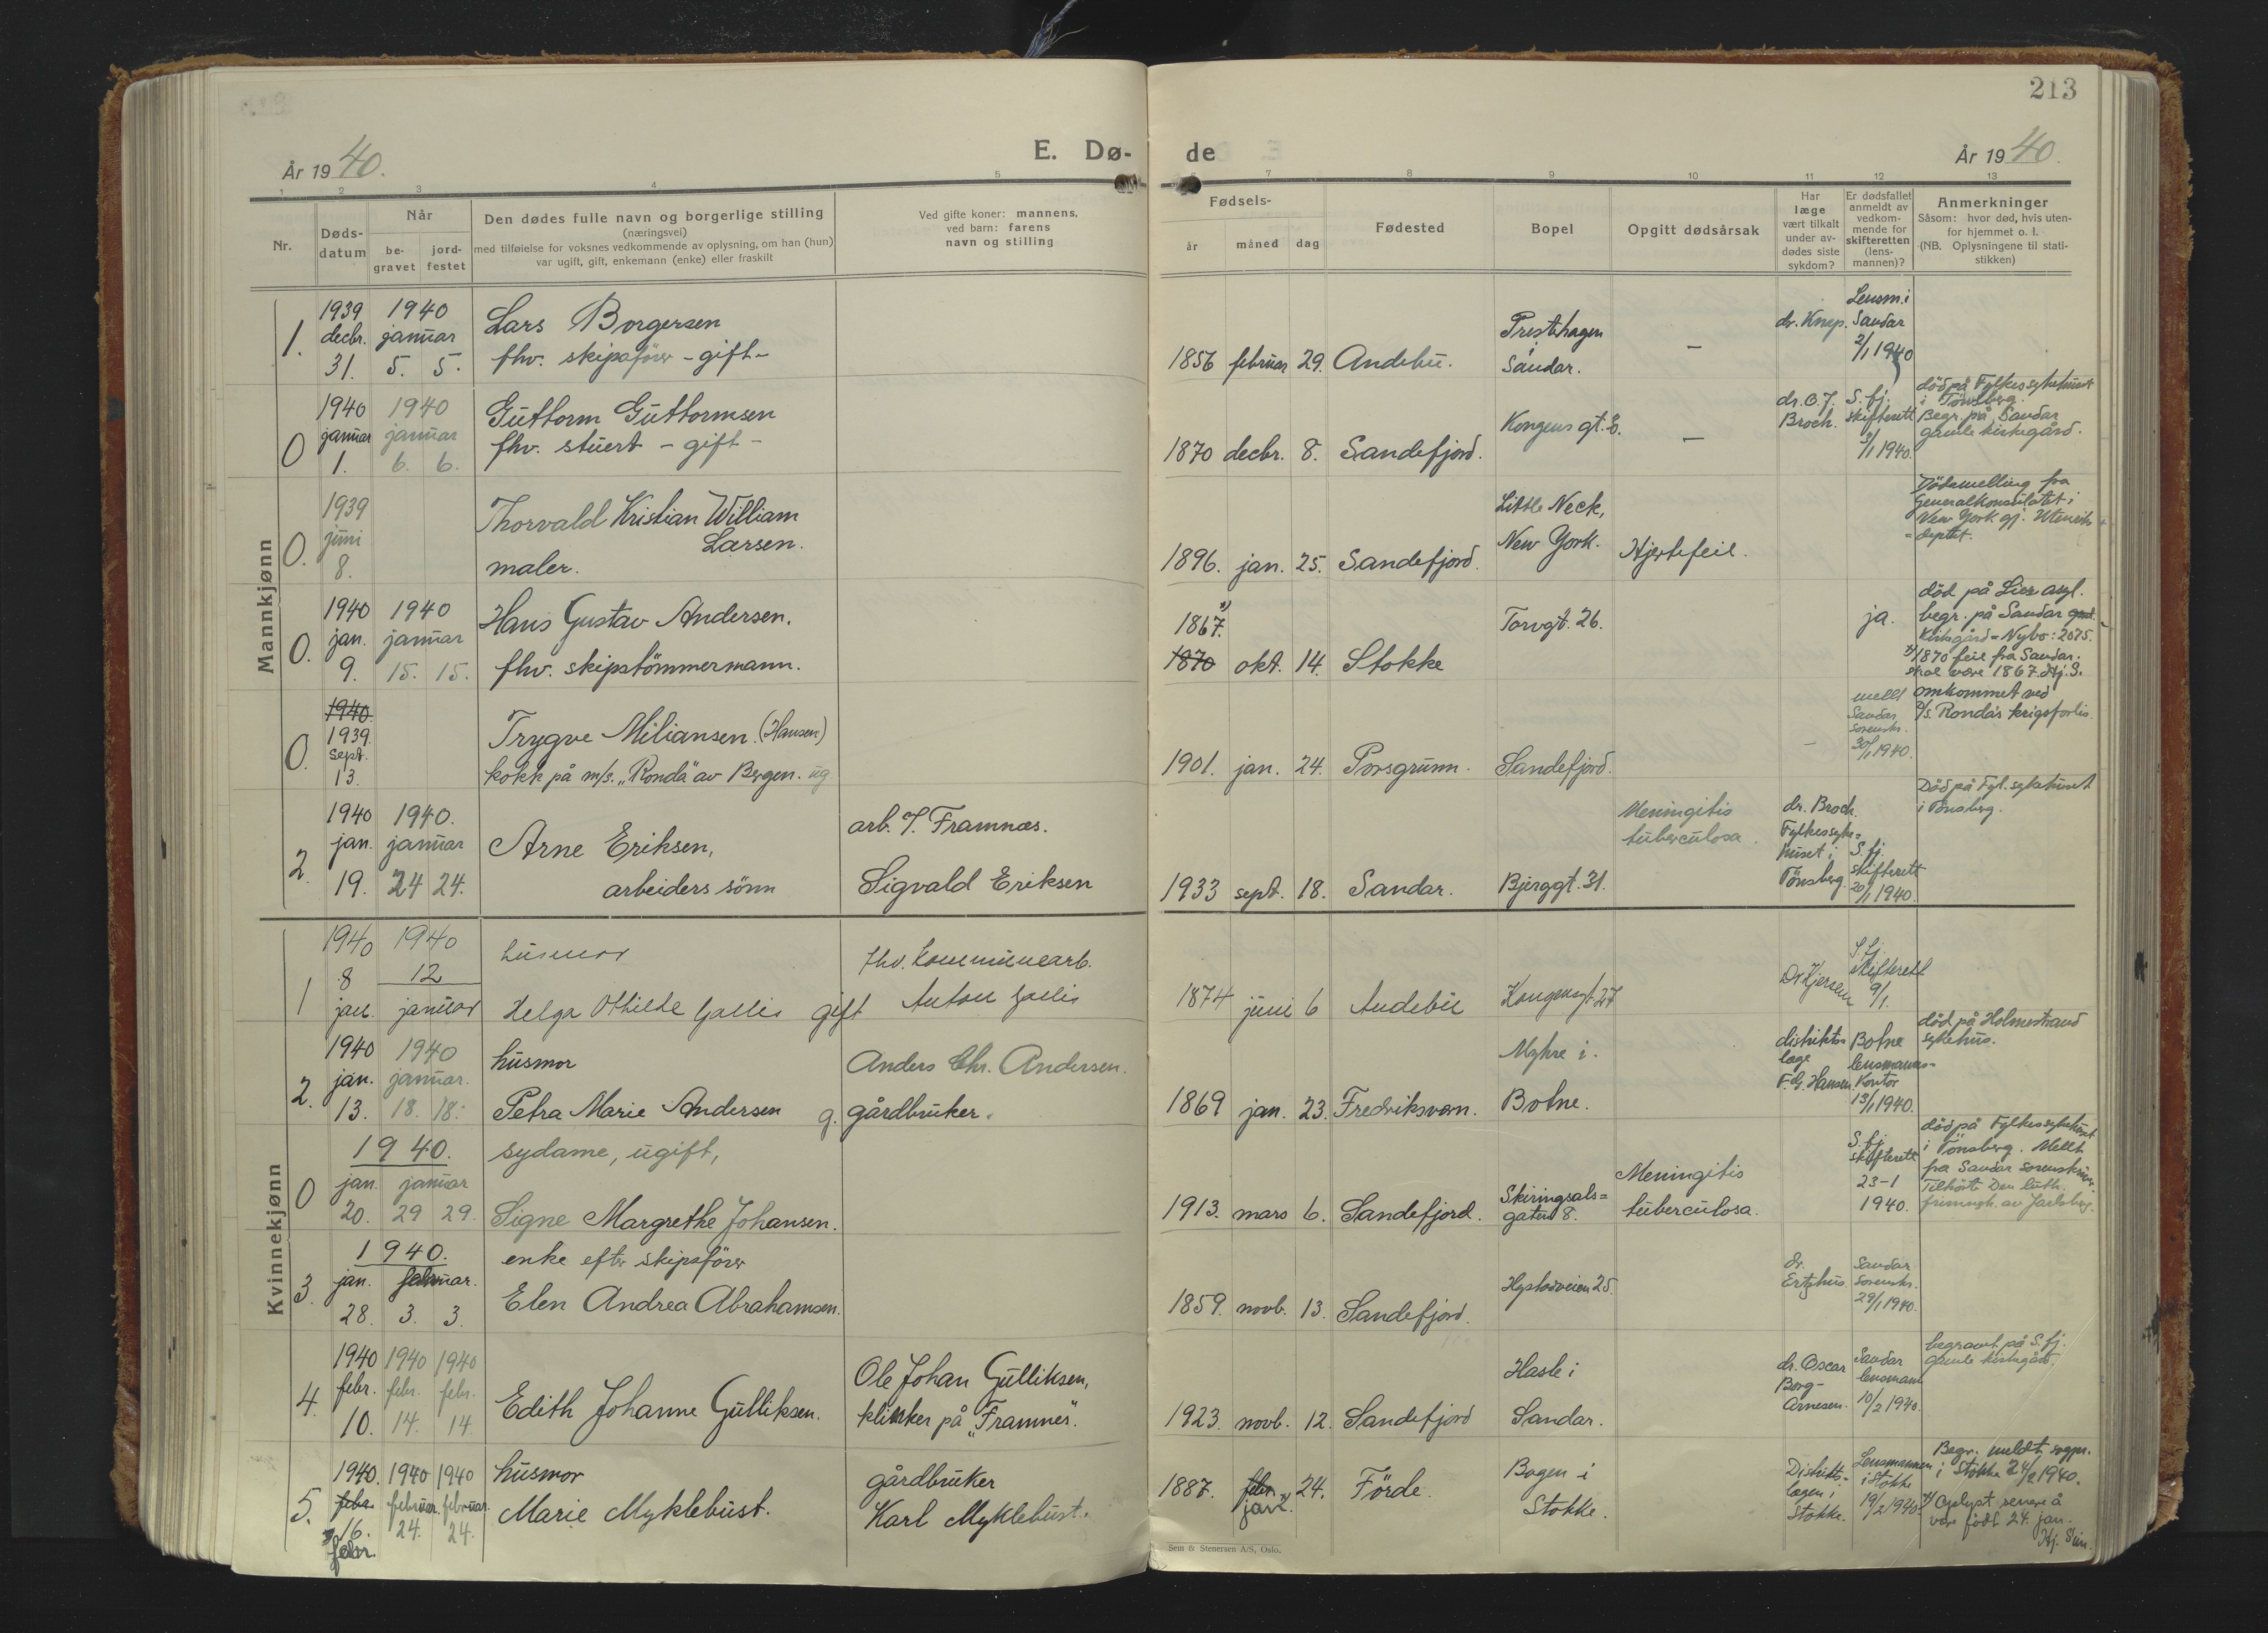 213
År 1940.
E. Dø-
de
År 1940.
1 2 3 4 5
7 8 9 10 11 12 13
Nr.
Døds-
datum
Når
be-
gravet
jord-
festet
Den dødes fulle navn og borgerlige stilling
(næringsvei)
med tilføielse for voksnes vedkommende av oplysning, om han (hun)
var ugift, gift, enkemann (enke) eller fraskilt
Ved gifte koner: mannens,
ved barn: farens
navn og stilling
Fødsels-
år måned dag
Fødested
Bopel
Opgitt dødsårsak
Har
læge
vært tilkalt
under av-
dødes siste
sykdom?
Er dødsfallet
anmeldt av
vedkom-
mende for
skifteretten
(lens-
mannen)?
Anmerkninger
Såsom: hvor død, hvis uten-
for hjemmet o. l.
(NB. Oplysningene til stati-
stikken)
Mannkjønn
1.
1939
decbr.
31.
1940
januar
5. 5.
Lars Borgersen
fhv. skipsfører - gift -
1856 februar 29. Andebu.
Prestehagen
i
Sandar.
—
dr. Knap.
Lensm. i
Sandar
2/1 1940
0
1940
januar
1.
1940
januar
6. 6.
Guttorm Guttormsen
fhv. stuert - gift -
1870 decbr. 8. Sandefjord.
Kongens gt.
—
dr. O. J.
Broch.
S. fj.
skifterett
3/1 1940.
død på Fylkessykehuset
i Tønsberg.
Begr. på Sandar
gamle kirkegård.
0.
1939
juni
8.
Thorvald Kristian William
Larsen.
maler.
1896. jan. 25. Sandefjord.
Little Neck,
New York.
Hjertefeil.
Dødsmelling fra
Generalkonsulatet i
New York gj. Utenriks
= deptet.
0.
1940
jan.
9.
1940
januar
15. 15.
Hans Gustav Andersen.
fhv. skipstømmermann.
1867.
1870 okt. 14. Stokke
Torvgt. 26.
ja.
død på Lier asyl.
begr. på Sandar
Kirkegård = Nybo: 2075.
1870 feil fra Sandar.
skal være 1867. Hj. S.
0.
1940.
1939.
sept.
13.
Trygve Miliansen. (Hansen)
kokk på m/s. „Ronda" av Bergen. ug
1901. jan. 24. Porsgrunn. Sandefjord.
—
melt
Sandar
sorenskr.
30/1 1940.
omkommet ved
M/S. Ronda's krigsforlis.
2.
1940
jan.
19.
1940.
januar
24 24.
Arne Eriksen,
arbeiders sønn
arb. J. Framnæs.
Sigvald Eriksen
1933 sept. 18. Sandar. Bjerggt. 31.
Meningitis
tuberculosa.
dr. Broch.
Fylkessyke=
huset i
Tønsberg.
S. fj.
skifterett
20/1 1940.
Død på Fyl. sykehuset
i Tønsberg.
Kvinnekjønn
1
1940
8
jan.
1940
12
januar
husmor
Helga Othilde Gallis gift
fhv. Kommunearb.
Anton Gallis
1874 juni 6 Andebu Kongensgt. 27
Dr. Hjersem
S. fj.
skifterett
9/1.
2.
1940
jan.
13.
1940
januar.
18. 18.
husmor
Petra Marie Andersen g.
Anders Chr. Andersen.
gårdbruker.
1869 jan. 23. Fredriksvern.
Myhre i.
Botne.
distrikts=
læge
F. G. Hansen.
Botne
lensmanns=
Kontor
13/1 1940.
død på Holmestrand
sykehus.
0
1940.
jan. januar
20. 29 29.
sydame, ugift,
Signe Margrethe Johansen.
1913. mars 6. Sandefjord.
Skiringsals=
gaten 8.
Meningitis
tuberculosa.
S. fj.
skifterett
23-1
1940.
død på Fylkessykehuset
i Tønsberg. Meldt
fra Sandar sorenskriver.
Tilhørte Den luth.
frimngh. av Jarlsberg.
3.
1940.
jan. februar.
28. 3. 3.
enke efter skipsfører
Elen Andrea Abrahamsen.
1859. novb. 13. Sandefjord.
Hystadveien 25.
dr.
Ertzhus.
Sandar
Sorenskr.
29/1 1940.
4.
1940 1940 1940
febr. febr. febr.
10. 14. 14.
Edith Johanne Gulliksen.
Ole Johan Gulliksen,
klinker på „Framnes".
1923. novb. 12. Sandefjord
Hasle i
Sandar.
dr. Oscar
Borg-
Arnesen.
Sandar
lensmann
10/2 1940.
begravet på S. fj.
gamle kirkegård.
5.
1940. 1940 1940
febr. februar. februar.
16. 24. 24.
febr.
husmor
Marie Myklebust.
gårdbruker
Karl Myklebust.
1887. febr. 24. Førde.
jan.
Bogen i
Stokke.
Distrikts-
lægen i
Stokke.
Lensmannen
i Stokke
19/2 1940.
Begr. meldt sogpr.
i Stokke 24/2 1940.
Oplyst senere å
være født 24. jan.
Hj. Sim.
Sem & Stenersen A/S, Oslo.